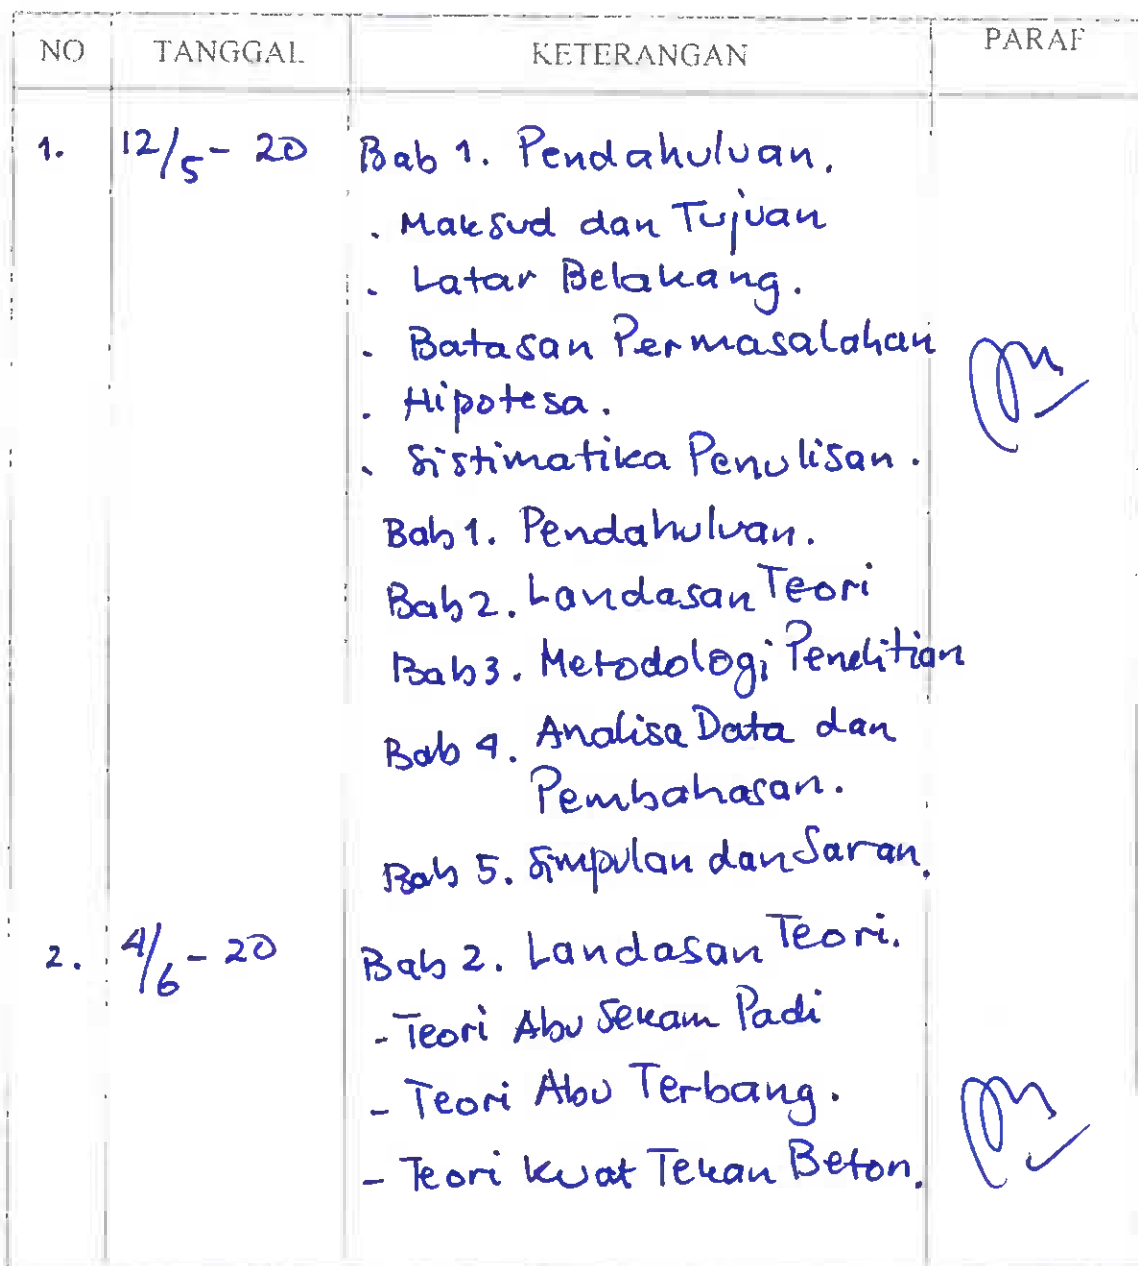 NO TANGGAL KETERANGAN PARAF
1. 12/5 - 20 Bab 1. Pendahuluan.
. Maksud dan Tujuan
. Latar Belakang.
. Batasan Permasalahan
. Hipotesa.
. Sistimatika Penulisan.
Bab 1. Pendahuluan.
Bab 2. Landasan Teori
Bab 3. Metodologi Penelitian
Bab 4. Analisa Data dan
Pembahasan.
Bab 5. Simpulan dan Saran.
2. 4/6 - 20 Bab 2. Landasan Teori.
- Teori Abu Sekam Padi
- Teori Abu Terbang.
- Teori Kuat Tekan Beton.